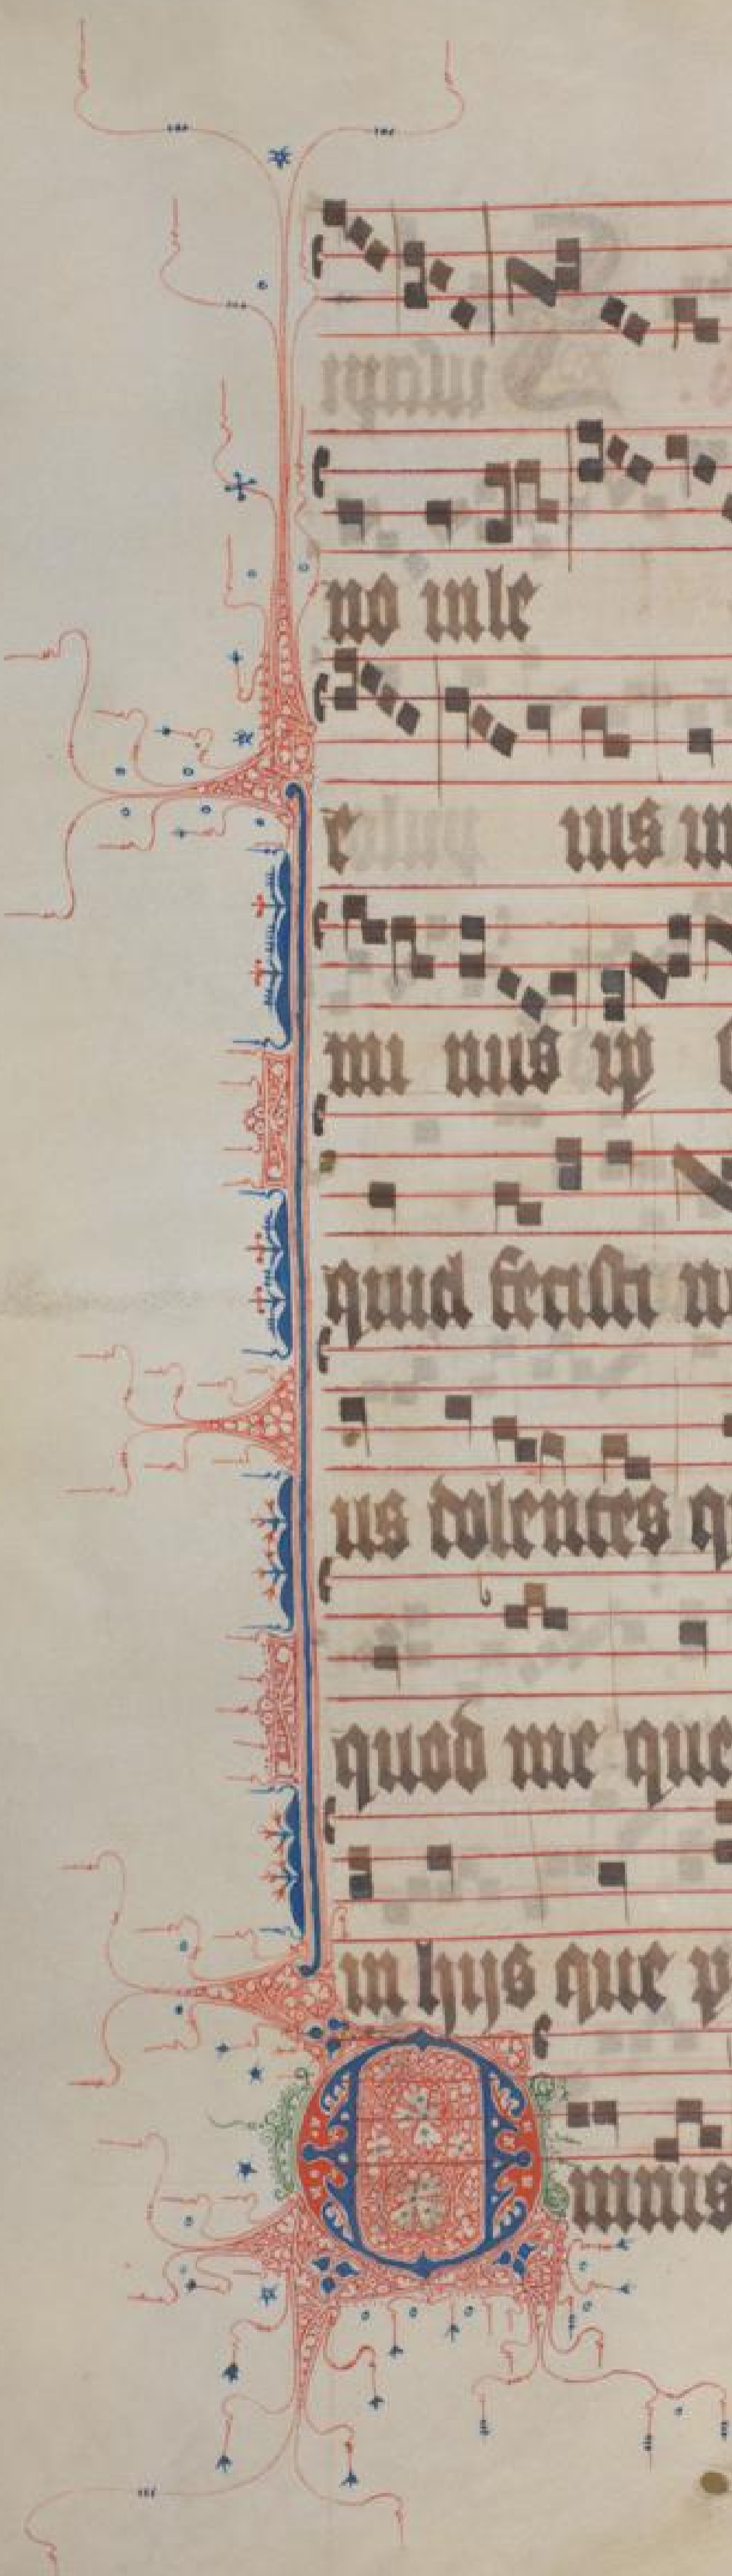 no inle
e ius in
mi nus ip
quid fecisti n
us dolentes qu
quod me que
in hijs que p
Omnis